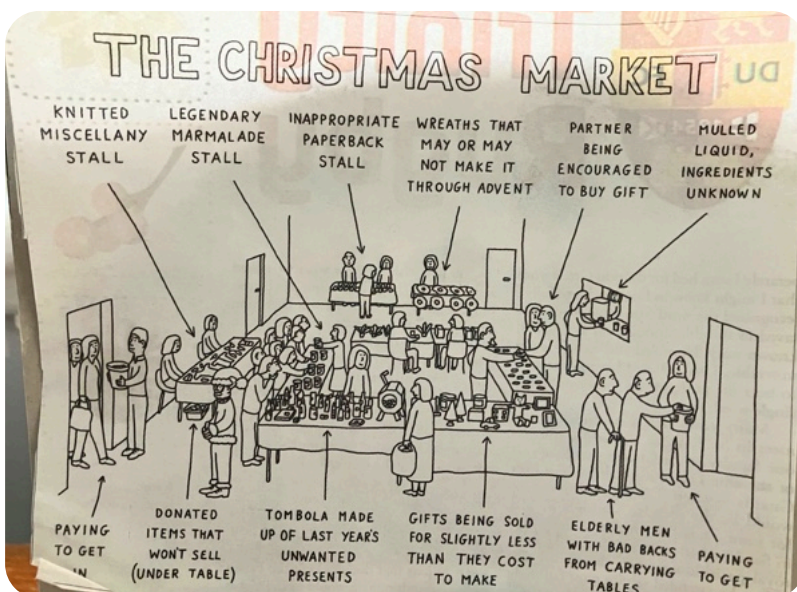 THE CHRISTMAS MARKET
KNITTED
MISCELLANY
STALL
LEGENDARY
MARMALADE
STALL
INAPPROPRIATE
PAPERBACK
STALL
WREATHS THAT
MAY OR MAY
NOT MAKE IT
THROUGH ADVENT
PARTNER
BEING
ENCOURAGED
TO BUY GIFT
MULLED
LIQUID,
INGREDIENTS
UNKNOWN
PAYING
TO GET
IN
DONATED
ITEMS THAT
WON'T SELL
(UNDER TABLE)
TOMBOLA MADE
UP OF LAST YEAR'S
UNWANTED
PRESENTS
GIFTS BEING SOLD
FOR SLIGHTLY LESS
THAN THEY COST
TO MAKE
ELDERLY MEN
WITH BAD BACKS
FROM CARRYING
TABLES
PAYING
TO GET